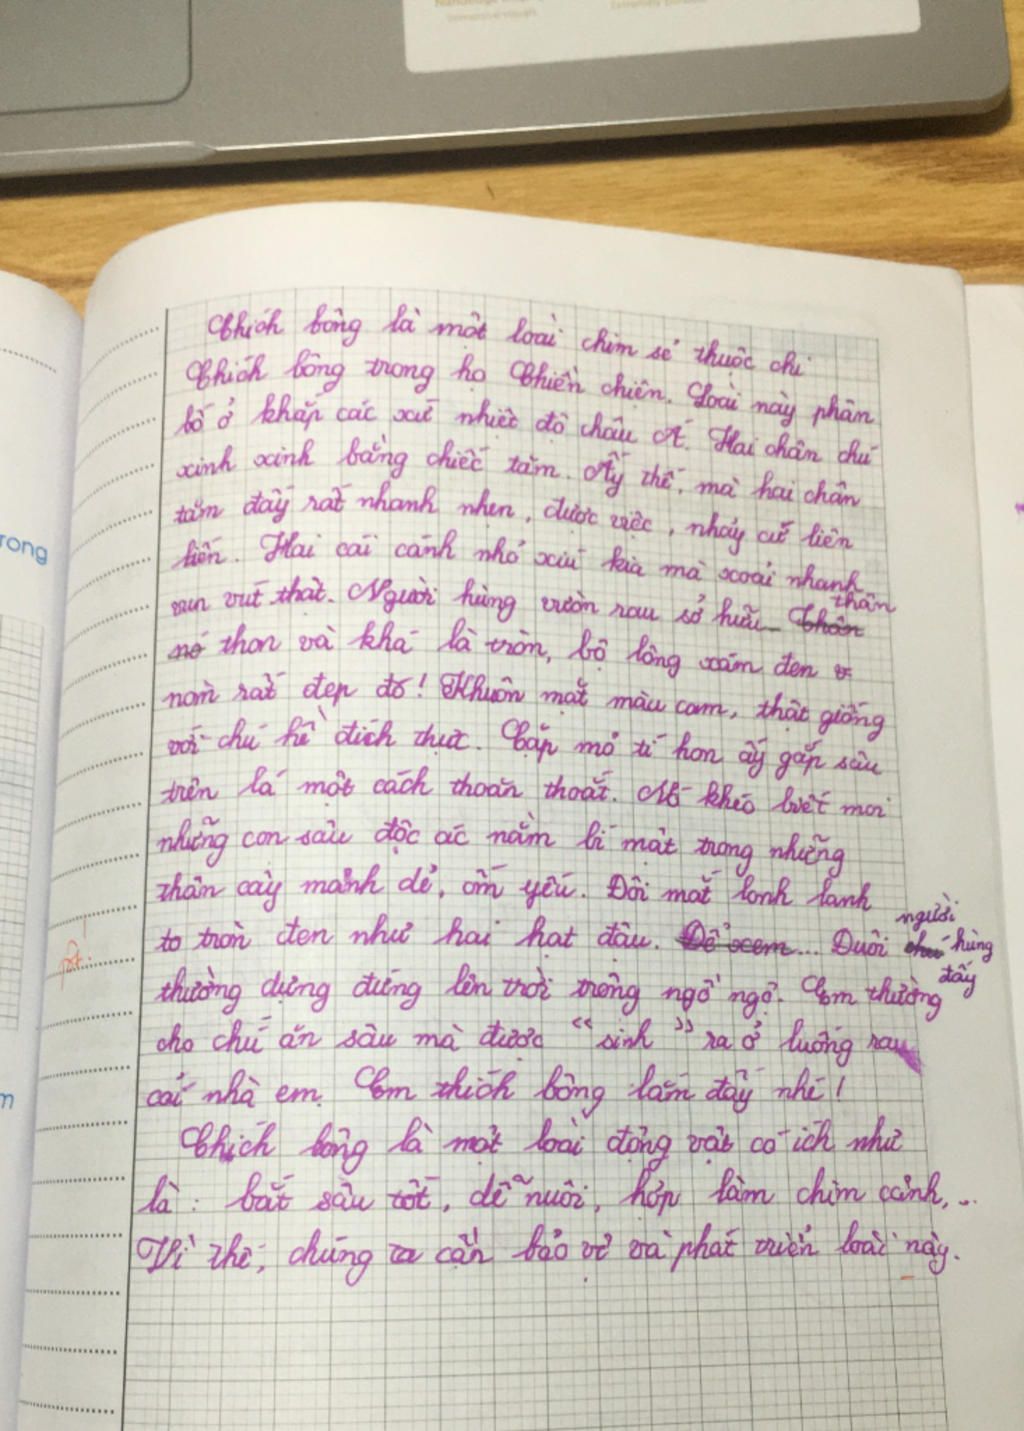 rong
m
Chích bông là một loài chim sẻ thuộc chi
Chích bông trong họ Chiền chiện. Loài này phân
bố ở khắp các xứ nhiệt độ châu Á. Hai chân chú
xinh xinh bằng chiếc tăm. Ấy thế, mà hai chân
tăm đấy rất nhanh nhẹn, được việc, nhảy cứ liên
liến. Hai cái cánh nhỏ xíu kia mà xoải nhanh
vun vút thật. Người hùng vườn rau sở hữu thân
thon và khá là tròn, bộ lông xám đen
nom rất đẹp đó! Khuôn mặt màu cam, thật giống
với chú hề đích thực. Cặp mỏ tí hon ấy gắp sâu
trên lá một cách thoăn thoắt. Nó khéo biết moi
những con sâu độc ác nằm bí mật trong những
thân cây mảnh dẻ, ốm yếu. Đôi mắt lonh lanh
to tròn đen như hai hạt đậu. Để xem... Đuôi người hùng
đấy
thường dựng đứng lên trời trông ngồ ngộ. Em thường
cho chú ăn sâu mà được "sinh" ra ở luống rau
cải nhà em. Em thích bông lắm đấy nhé!
Chích bông là một loài động vật có ích như
là: bắt sâu tốt, dễ nuôi, hợp làm chim cảnh,...
Vì thế, chúng ta cần bảo vệ và phát triển loài này.